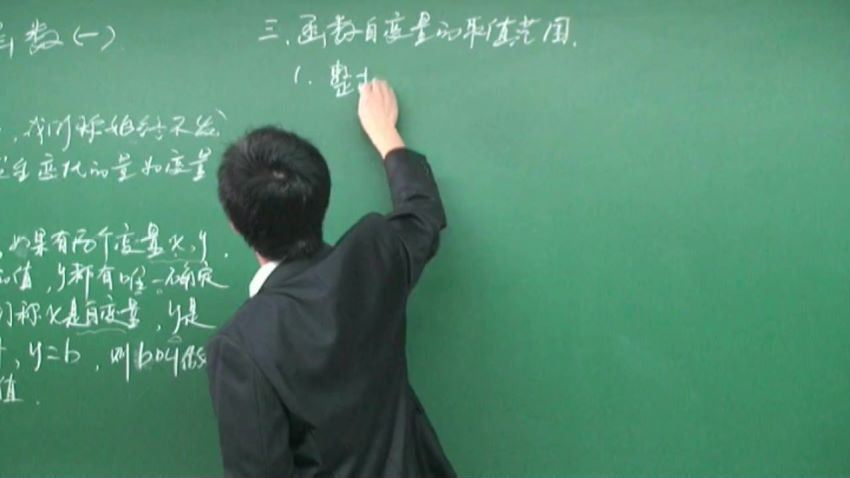 函数(一)
,我们称始终不发
生变化的量为变量
,如果有两个变量x,y,
的值,y都有唯一确定
们称x是自变量,y是
,y=b,则b叫做
值.
三.函数自变量的取值范围.
1.整